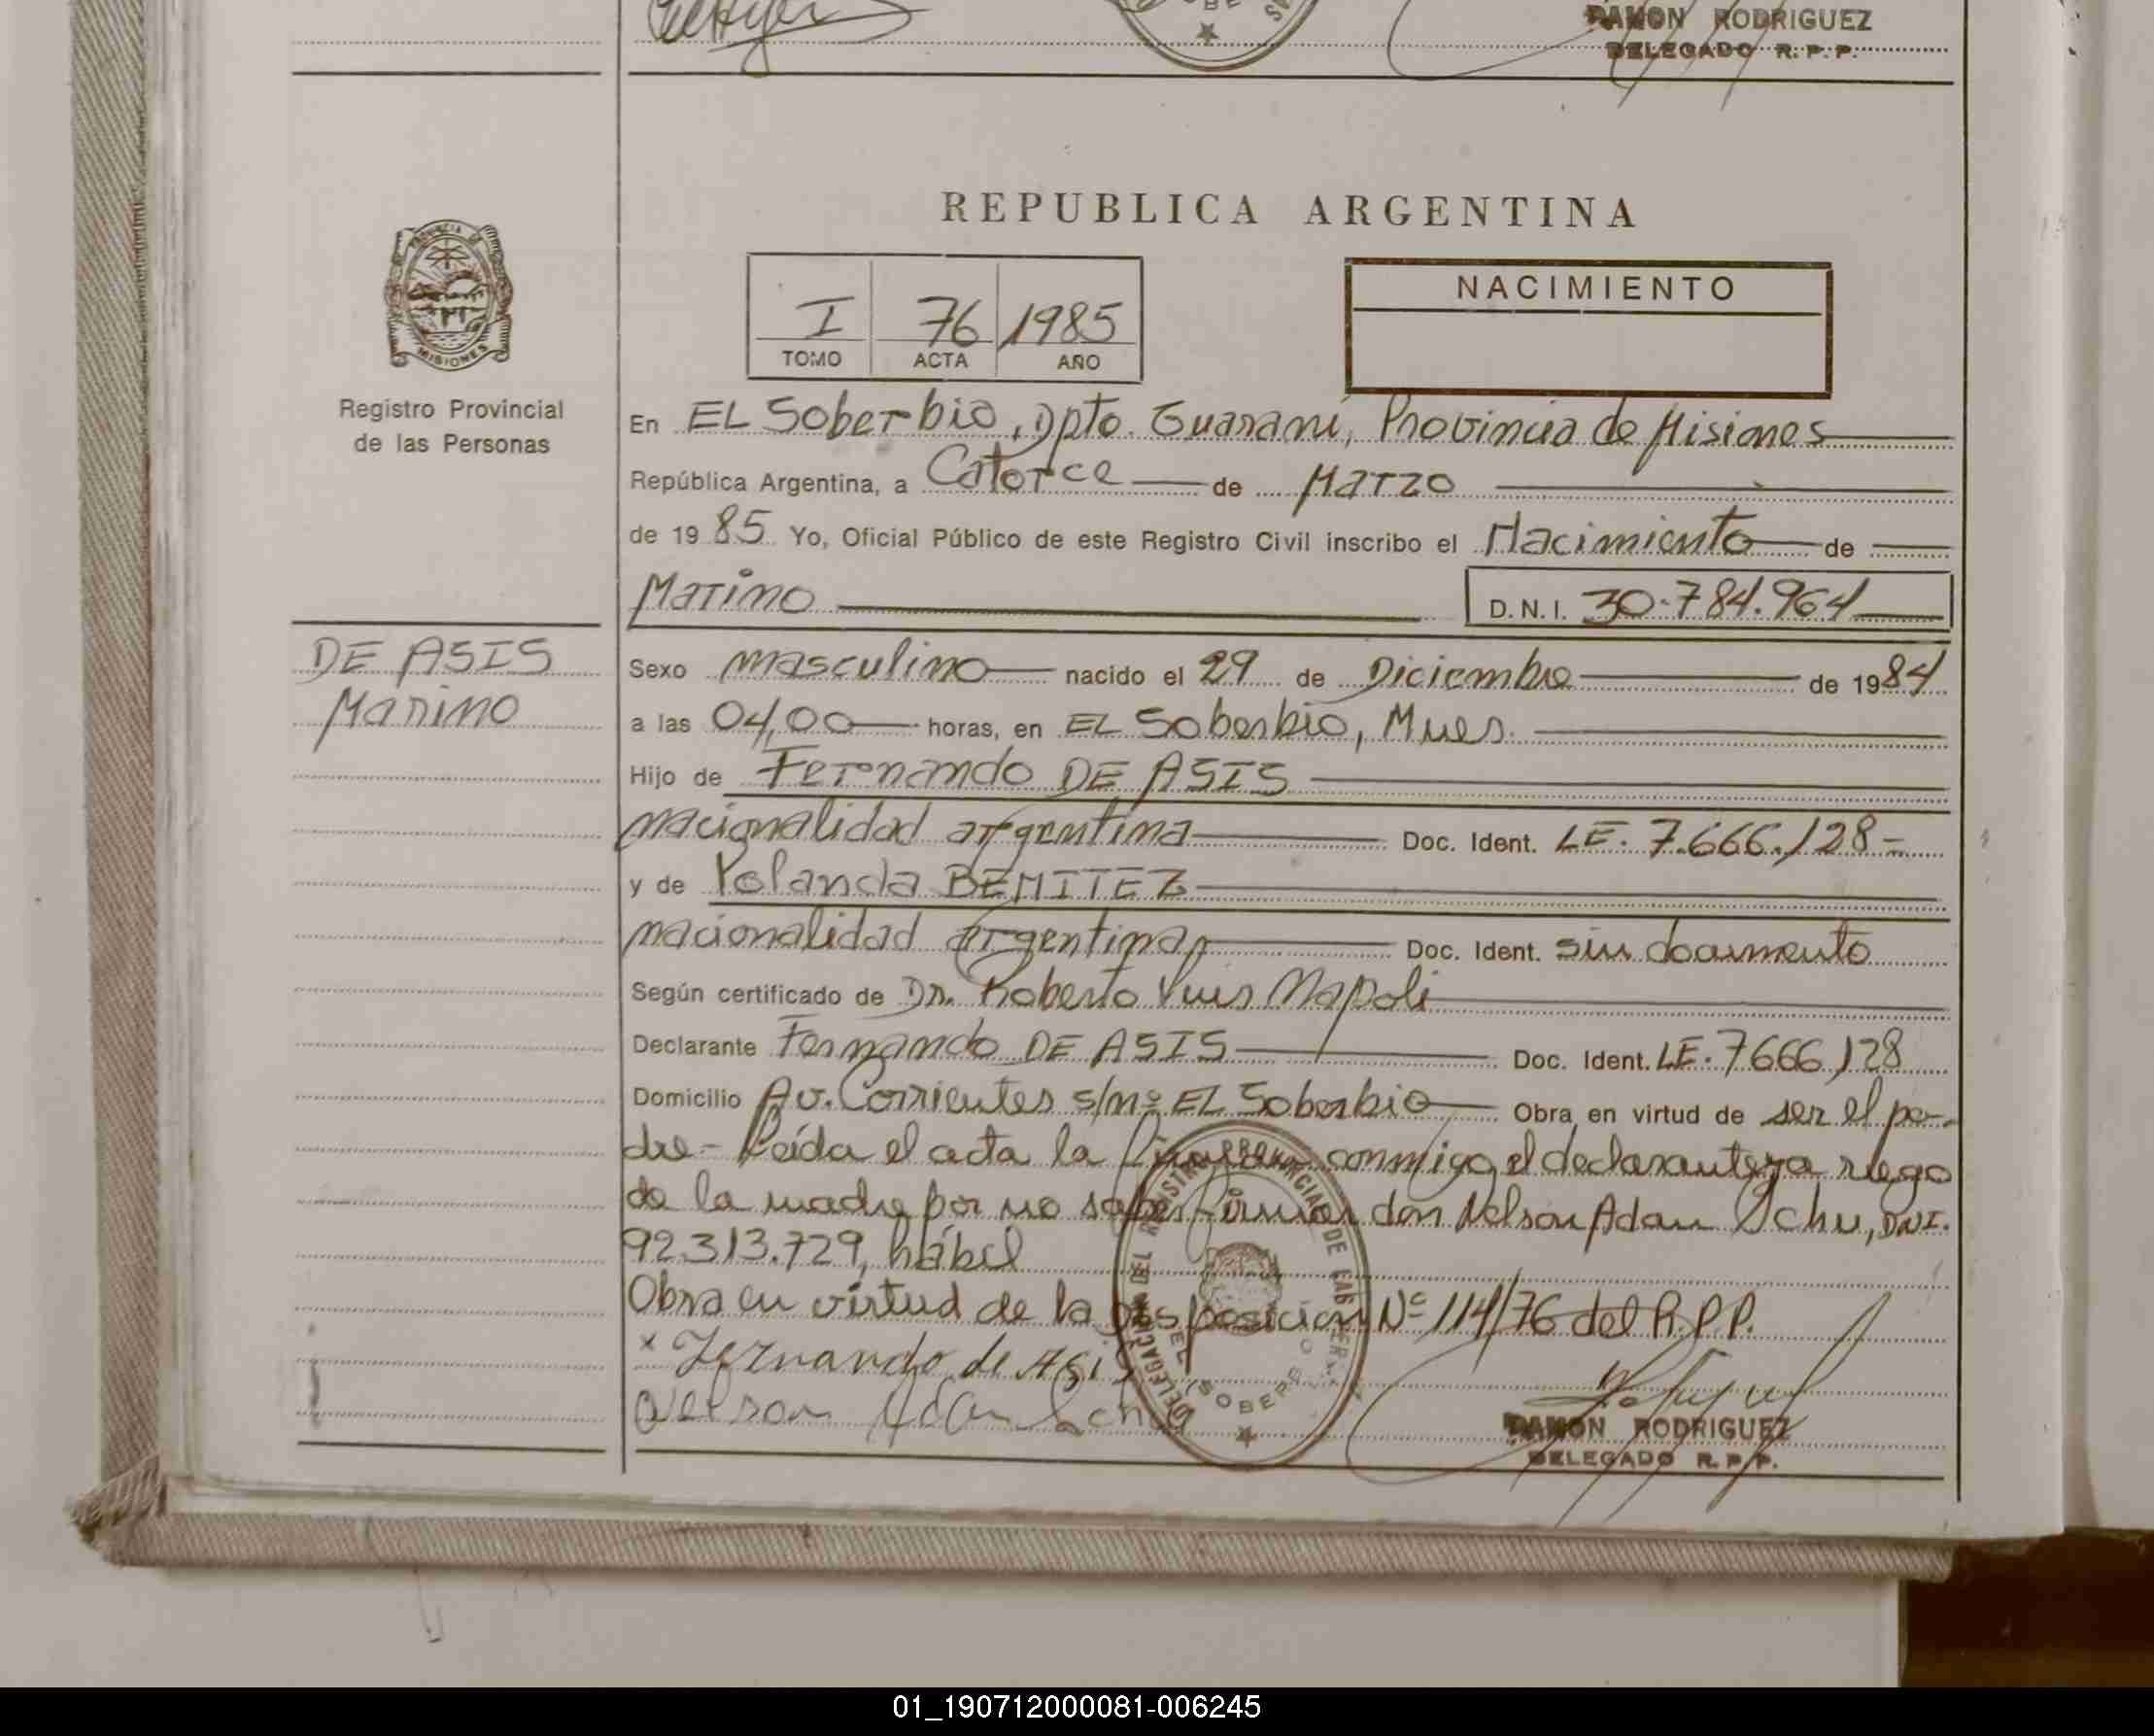 RAMON RODRIGUEZ
DELEGADO R. P. P.
REPUBLICA ARGENTINA
I 76 1985
TOMO ACTA AÑO
NACIMIENTO
PROVINCIA DE
MISIONES
Registro Provincial
de las Personas
En EL Soberbio, Dpto. Guarani, Provincia de Misiones
República Argentina, a Catorce de Marzo
de 19 85 Yo, Oficial Público de este Registro Civil inscribo el Nacimiento de
Marino D.N.I. 30.784.964
DE ASIS
Marino
Sexo masculino nacido el 29 de Diciembre de 1984
a las 04,00 horas, en EL Soberbio, Mnes.
Hijo de Fernando DE ASIS
nacionalidad argentina Doc. Ident. LE. 7.666.128
y de Yolanda BENITEZ
nacionalidad argentina Doc. Ident. sin documento
Según certificado de Dr. Roberto Luis Napoli
Declarante Fernando DE ASIS Doc. Ident. LE. 7666128
Domicilio Av. Corrientes s/nº EL Soberbio Obra en virtud de ser el pa-
dre - Leída el acta la conmigo el declarante y a ruego
de la madre por no saber firmar don Nelson Adan Ochu, DNI.
92.313.729, hábil
Obra en virtud de la disposicion Nº 114/76 del R.P.P.
x Fernando de Asis
Nelson Adan
RAMON RODRIGUEZ
DELEGADO R. P. P.
01_190712000081-006245